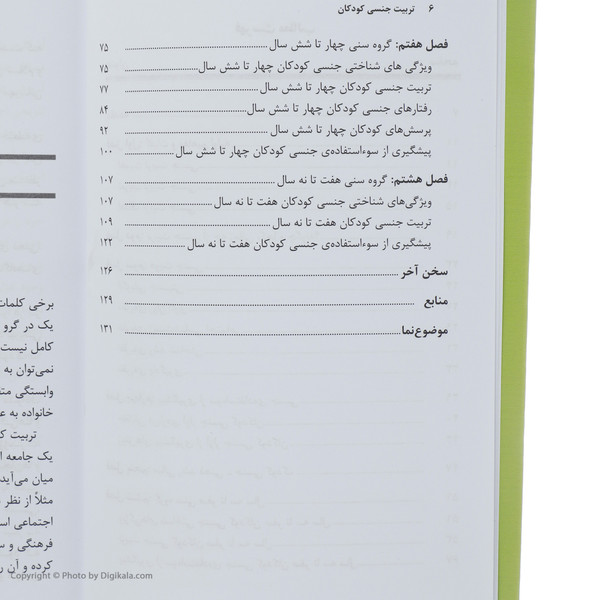 ۶ تربیت جنسی کودکان
فصل هفتم: گروه سنی چهار تا شش سال ۷۵
ویژگی های شناختی جنسی کودکان چهار تا شش سال ۷۵
تربیت جنسی کودکان چهار تا شش سال ۷۷
رفتارهای جنسی کودکان چهار تا شش سال ۸۴
پرسش‌های کودکان چهار تا شش سال ۹۲
پیشگیری از سوءاستفاده‌ی جنسی کودکان چهار تا شش سال ۱۰۰
فصل هشتم: گروه سنی هفت تا نه سال ۱۰۷
ویژگی‌های شناختی جنسی کودکان هفت تا نه سال ۱۰۷
تربیت جنسی کودکان هفت تا نه سال ۱۰۹
پیشگیری از سوءاستفاده‌ی جنسی کودکان هفت تا نه سال ۱۲۲
سخن آخر ۱۲۶
منابع ۱۲۹
موضوع‌نما ۱۳۱
برخی کلمات
یک در گرو
کامل نیست
نمی‌توان به
وابستگی
خانواده به
تربیت
یک جامعه
میان می‌آید
مثلاً از نظر
اجتماعی
فرهنگی و
کرده و آن
Copyright © Photo by Digikala.com